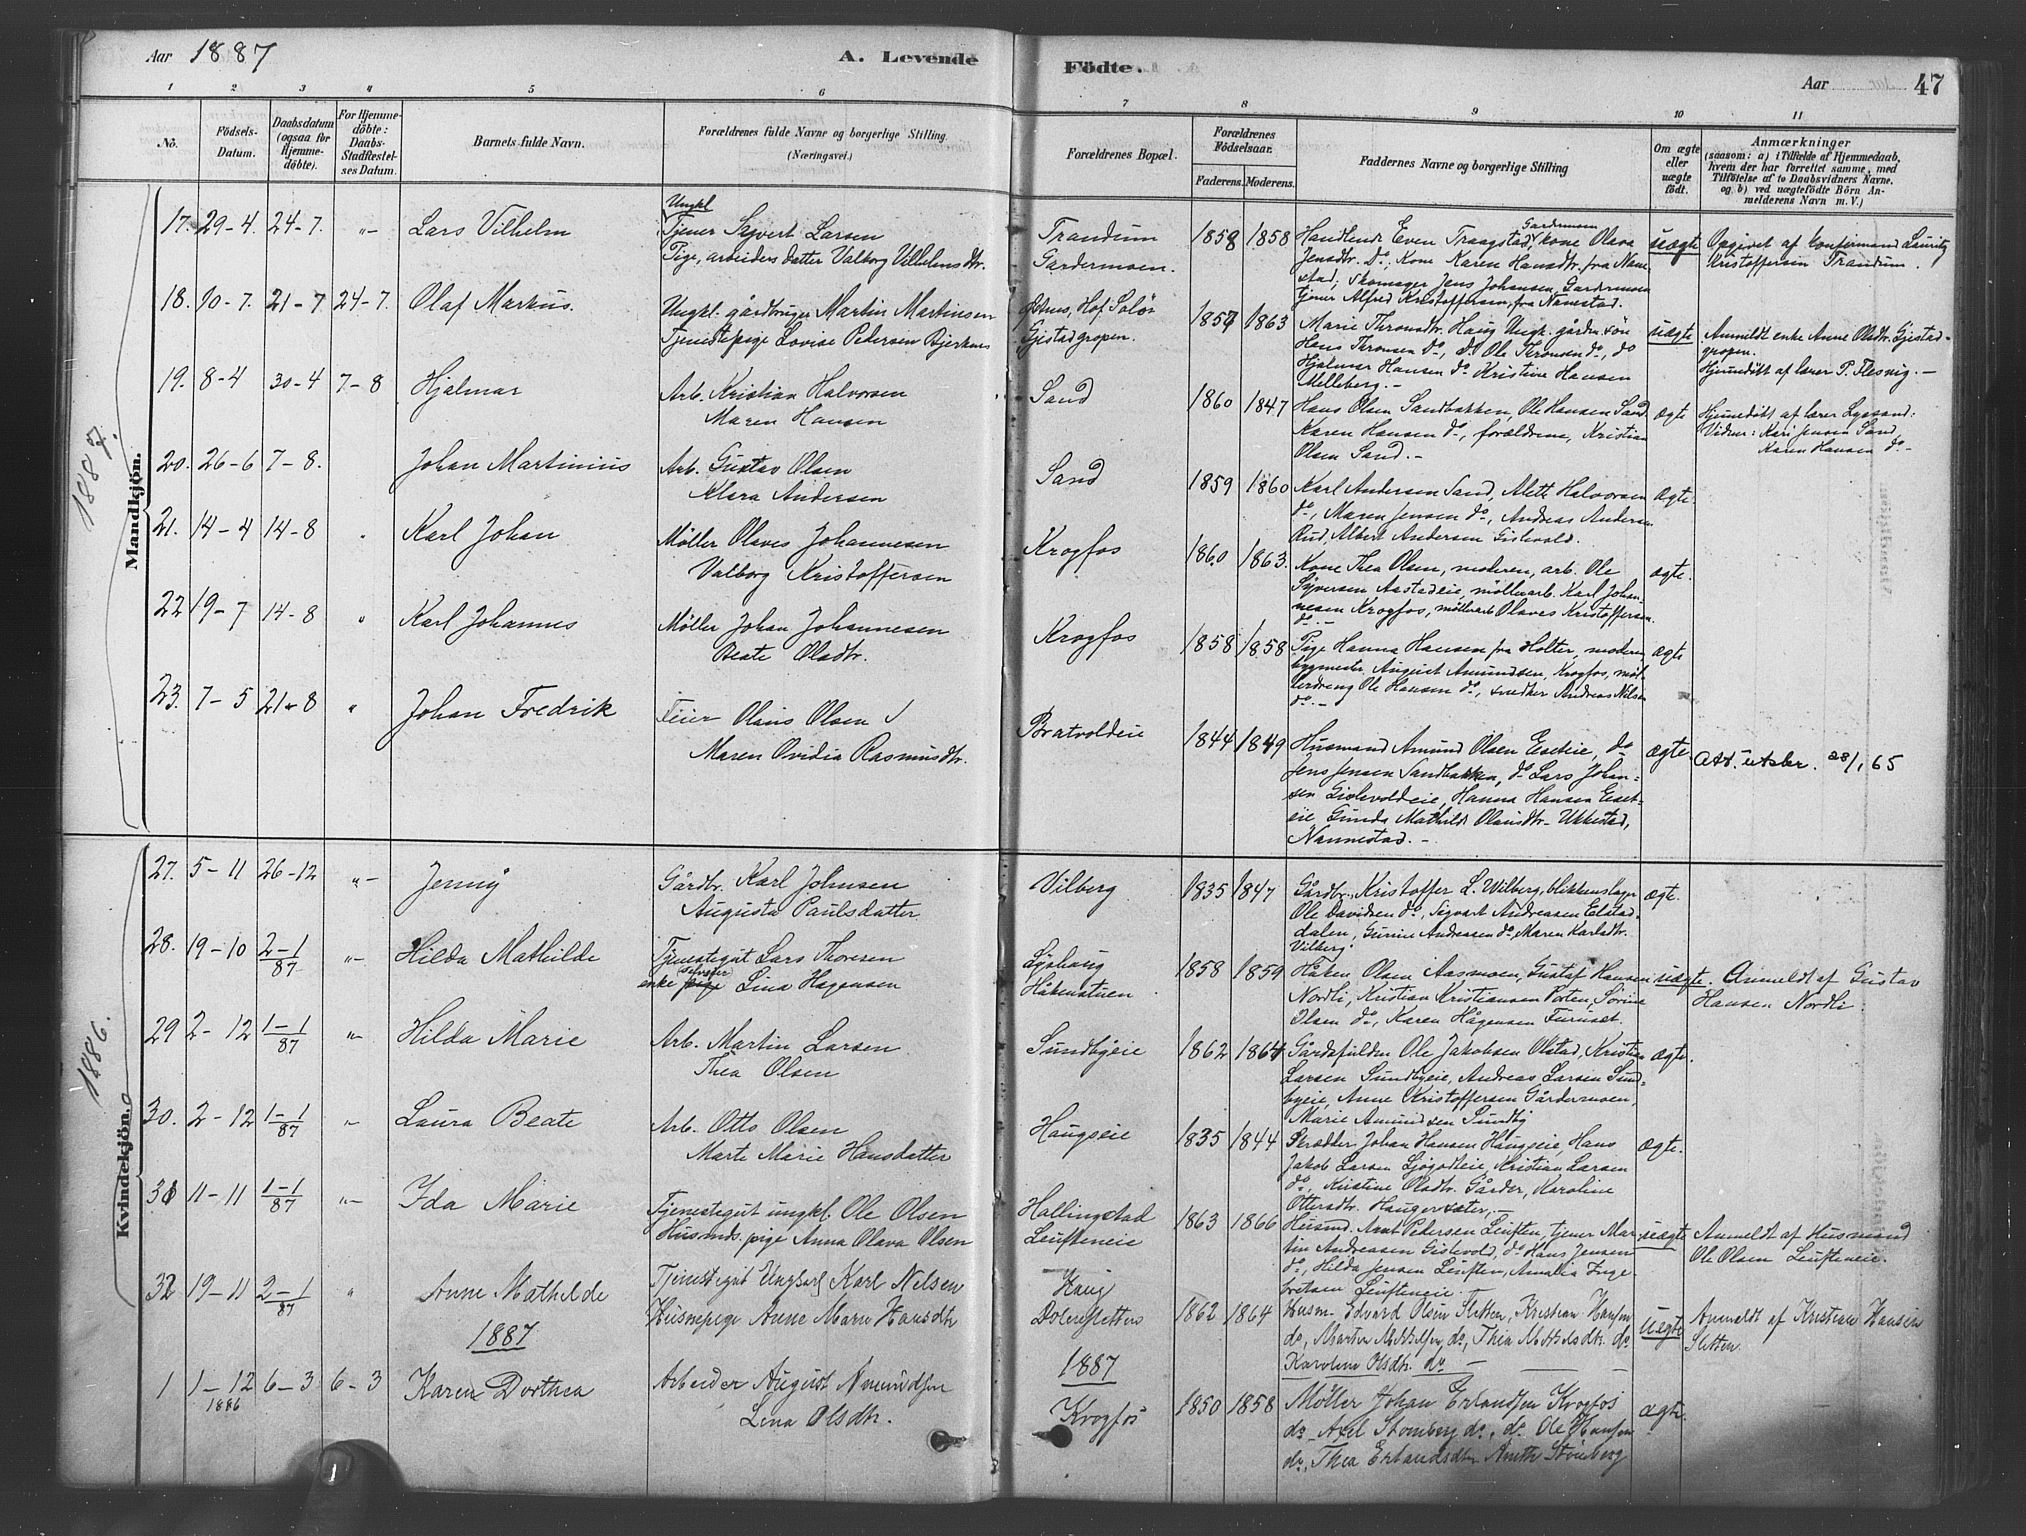 Aar 1887
A. Levende Födte.
Aar 47
1 2 3 4 5 6 7 8 9 10 11
No.
Födsels-
Datum.
Daabsdatum
(ogsaa for
Hjemme-
döbte).
For Hjemme-
döbte:
Daabs-
Stadfestel-
ses Datum.
Barnets fulde Navn.
Forældrenes fulde Navne og borgerlige Stilling.
(Næringsvei.)
Forældrenes Bopæl.
Forældrenes
Födselsaar.
Faderens. Moderens.
Faddernes Navne og borgerlige Stilling
Om ægte
eller
uægte
födt.
Anmærkninger
(saasom: a) i Tilfælde af Hjemmedaab,
hvem der har forrettet samme, med
Tilföielse af to Daabsvidners Navne,
og b) ved uægtefödte Börn An-
melderens Navn m. V.)
1887.
Mandkjön.
17. 29-4. 24-7. "- Lars Vilhelm
Ungkl
Tjener Syvert Larsen
Pige, arbeiders datter Valborg Vilhelmsdtr.
Trandum
Gardermoen.
1858 1858
Handlende Even Traagstad, Gardermoen kone Olava
Jensdtr. do, Kone Karen Hansdtr. fra Nane-
stad; Skomager Jens Johansen, Gardermoen
tjener Alfred Kristoffersen, fra Nanestad.
uægte
Opgivet af Konfirmand Lauritz
Kristoffersen Trandum.
18. 10-7. 21-7 24-7. Olaf Markus.
Ungkl. gårdbruger Martin Martinsen
Tjenestepige Lovise Pedersen Bjerknes
Hof. Solör
Gjestadgropen.
1857 1863
Marie Thronsdtr. Haug Ungk. gårdm. sön
Hans Thronsen do, do Ole Thronsen do, do
Hjalmar Hansen do Kristine Hansen
Melleberg.-
uægte
Anmeldt enke Anne Olsdtr. Gjestad-
gropen.
Hjemdöbt af lærer P. Flesvig.-
19. 8-4 30-4 7-8 Hjalmar
Arb. Kristian Halvorsen
Maren Hansen
Sand
1860 1847
Hans Olsen Sandbakken, Ole Hansen Sand
Karen Hansen do, forældrene, Kristian
Olsen Sand.-
ægte
Hjemedöbt af lærer Lyssand:
Vidner: Kari Jensen Sand,
Karen Hansen do-
20. 26-6 7-8. Johan Martinius
Arb. Gustav Olsen
Klara Andersen
Sand
1859 1860
Karl Andersen Sand, Mette Halvorsen
do, Maren Jensen do, Andreas Andersen
Rud, Albert Andersen Gislevold.
ægte.
21. 14-4 14-8 " Karl Johan
Møller Olaves Johannesen
Valborg Kristoffersen
Krogfos
1860 1863.
Kone Thea Olsen, moderen, arb. Ole
Syversen Aastadeie, möllerarb. Karl Johan-
nesen Krogfos, möllerarb Olaves Kristoffersen
do.-
ægte.
22 19-7 14-8 " Karl Johannes
Møller Johan Johannesen
Beate Olsdtr.
Krogfos
1858 1858
Pige Hanna Hansen fra Holter, moderen
bygmester August Amundsen, Krogfos, möl-
lerdreng Ole Hansen do, snedker Andreas Nilsen
do.-
ægte
23. 7-5 21-8 " Johan Fredrik
Feier Olaus Olsen
Maren Ovidia Rasmusdtr.
Bratvoldeie
1844 1849
Husmand Amund Olsen Eseteie, do
Jens Jensen Sandbakken, do Lars Johan-
sen Gislevoldeie, Hanna Hansen Eset-
eie, Gunda Mathilde Olausdtr. Ukkestad,
Nannestad.-
ægte.
Att. utstr. 28/1 65
1886.
Kvindekjön.
27. 5-11 26-12 "- Jenny
Gårdbr. Karl Johnsen
Augusta Paulsdatter
Vilberg
1835 1847
Gårdbr. Kristoffer L. Wilberg, blikkenslager
Ole Davidsen do, Sigvart Andreasen Elstad-
dalen, Gurine Andreasen do, Maren Karlsdtr.
Vilberg.
ægte.
28. 19-10 2-1/87 "- Hilda Mathilde
Tjenestegut Lars Thoresen
enke Lina Hagensen
Lyshaug
Håkenstuen
1858 1859
Håken Olsen Aasmoen, Gustaf Hansen
Nordli, Kristian Kristiansen Poten, Sörine
Olsen do, Karen Hågensen Furuset.
uægte.
Anmeldt af Gustav
Hansen Nordli.
29 2-12 1-1/87 "- Hilda Marie
Arb. Martin Larsen
Thea Olsen
Sundbyeie
1862 1864
Gårdsfuldm Ole Jakobsen Olstad, Kristian
Larsen Sundbyeie, Andreas Larsen Sund-
byeie, Anne Kristoffersen Gårdermoen,
Marie Amundsen Sundby
ægte.
30. 2-12 1-1/87 "- Laura Beate
Arb. Otto Olsen
Marte Marie Hansdatter
Haugseie
1835 1844
Skrædder Johan Hansen Haugseie, Hans
Jakob Larsen Ljøgodteie, Kristian Larsen
do, Kristine Olsdtr. Gårder, Karoline
Ottersdtr. Haugersæter.-
ægte.
31 11-11 1-1/87 "- Ida Marie
Tjenestegut ungkl. Ole Olsen
Husmds. pige Anna Olava Olsen
Hallingstad
Leufteneie
1863 1866
Husmd. Amt Pedersen Leuften, tjener Mar-
tin Andreasen Gislevold, do Hans Jensen
do, Hilda Jensen Leuften, Amalia Inge-
bretsen Leufteneie.
uægte
Anmeldt af Husmand
Ole Olsen Leufteneie.
32 19-11 2-1/87 " Anne Mathilde
Tjenestegut Ungkarl Karl Nilsen
Husmpige Anne Marie Hansdtr
Haug
1862 1864
Husm. Edvard Olsen Sletten, Kristian Hansen
do, Martin Mikkelsen do, Thea Mikkelsdtr. do
Karoline Olsdtr. do. -
uægte
Anmeldt af Kristian Hansen
Sletten.
1887
1887
1 1-12 1886 6-3 6-3 Karen Dorthea
Arbeider August Amundsen
Lina Olsdtr.
Krogfos
1850 1858
Møller Johan Erlandsen Krogfos
do Axel Stomberg do, do Ole Hansen
do, Thea Erlandsdtr Anette Strömberg
ægte.